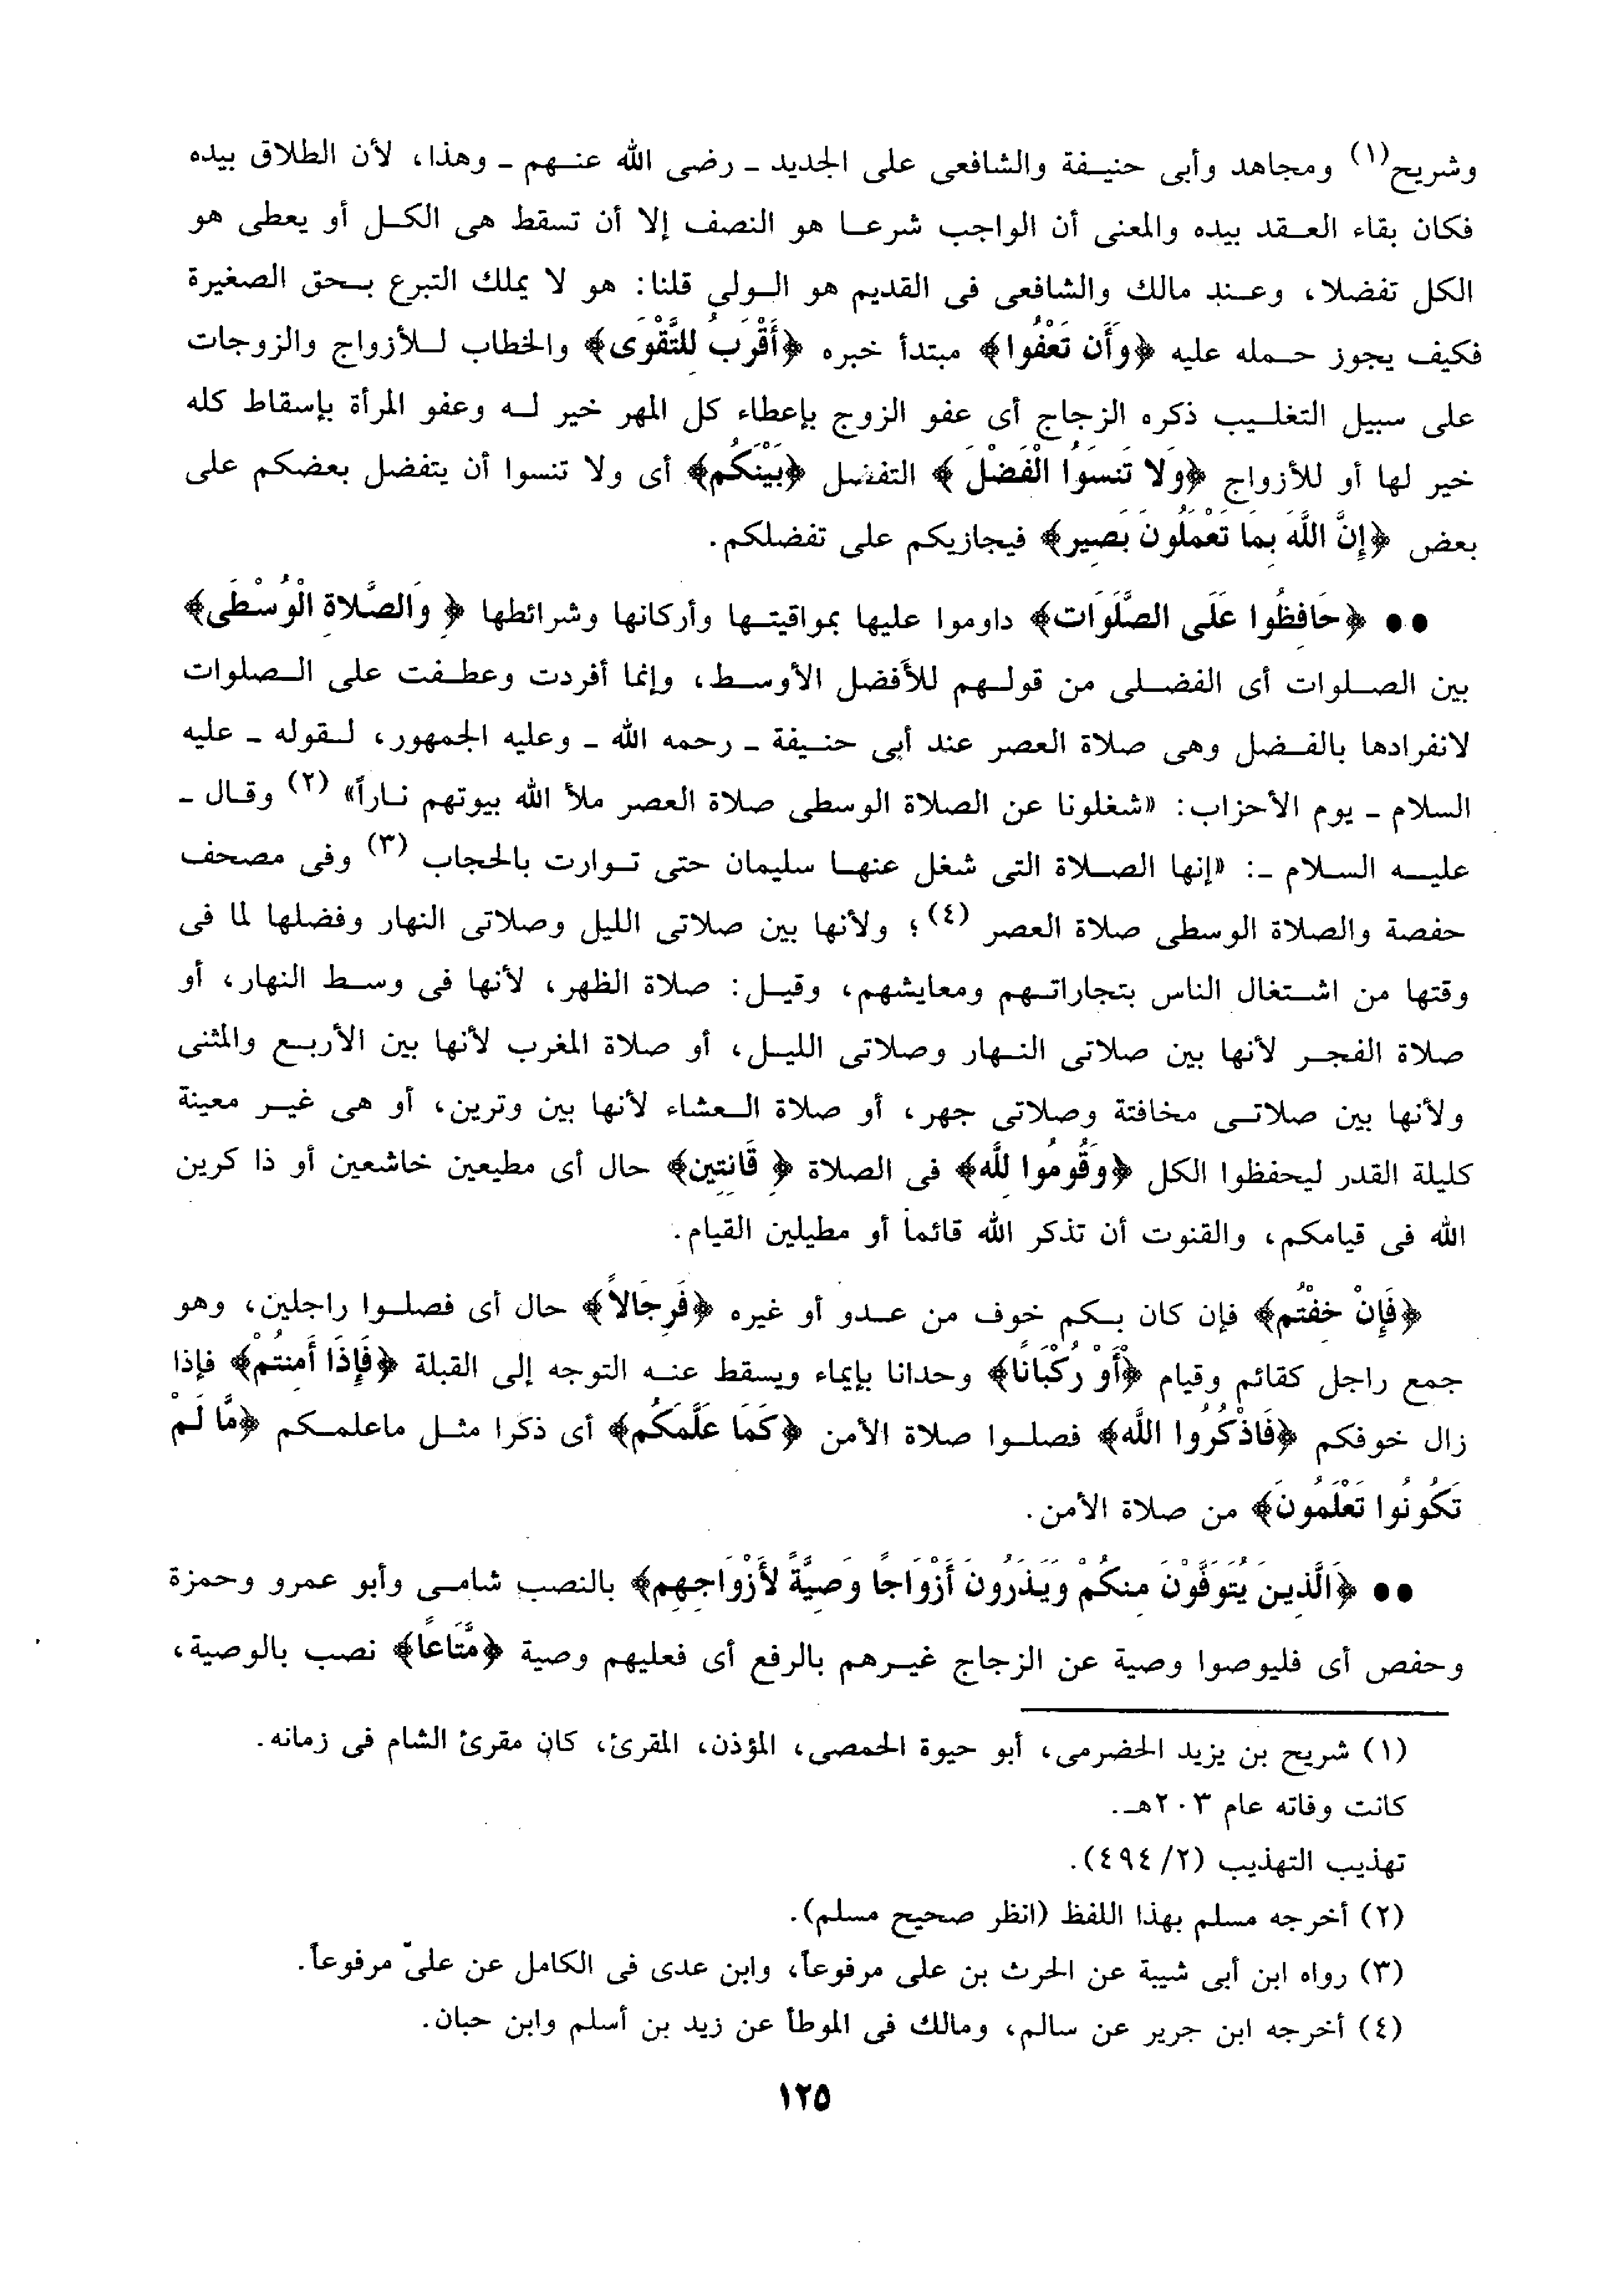 وشريح(١) ومجاهد وأبى حنيفة والشافعى على الجديد ـ رضى الله عنهم ـ وهذا، لأن الطلاق بيده
فكان بقاء العقد بيده والمعنى أن الواجب شرعا هو النصف إلا أن تسقط هى الكل أو يعطى هو
الكل تفضلا، وعند مالك والشافعى فى القديم هو الولي قلنا: هو لا يملك التبرع بحق الصغيرة
فكيف يجوز حمله عليه ﴿وَأَن تَعْفُوا﴾ مبتدأ خبره ﴿أَقْرَبُ لِلتَّقْوَى﴾ والخطاب للأزواج والزوجات
على سبيل التغليب ذكره الزجاج أى عفو الزوج بإعطاء كل المهر خير له وعفو المرأة بإسقاط كله
خير لها أو للأزواج ﴿وَلا تَنسَوُا الْفَضْلَ﴾ التفضل ﴿بَيْنَكُمْ﴾ أى ولا تنسوا أن يتفضل بعضكم على
بعض ﴿إِنَّ اللَّهَ بِمَا تَعْمَلُونَ بَصِير﴾ فيجازيكم على تفضلكم.
●● ﴿حَافِظُوا عَلَى الصَّلَوَات﴾ داوموا عليها بمواقيتها وأركانها وشرائطها ﴿وَالصَّلاةِ الْوُسْطَى﴾
بين الصلوات أى الفضلى من قولهم للأفضل الأوسط، وإنما أفردت وعطفت على الصلوات
لانفرادها بالفضل وهى صلاة العصر عند أبى حنيفة ـ رحمه الله ـ وعليه الجمهور، لقوله ـ عليه
السلام ـ يوم الأحزاب: «شغلونا عن الصلاة الوسطى صلاة العصر ملأ الله بيوتهم ناراً» (٢) وقال ـ
عليه السلام ـ: «إنها الصلاة التى شغل عنها سليمان حتى توارت بالحجاب (٣) وفى مصحف
حفصة والصلاة الوسطى صلاة العصر (٤)؛ ولأنها بين صلاتى الليل وصلاتى النهار وفضلها لما فى
وقتها من اشتغال الناس بتجاراتهم ومعايشهم، وقيل: صلاة الظهر، لأنها فى وسط النهار، أو
صلاة الفجر لأنها بين صلاتى النهار وصلاتى الليل، أو صلاة المغرب لأنها بين الأربع والمثنى
ولأنها بين صلاتى مخافتة وصلاتى جهر، أو صلاة العشاء لأنها بين وترين، أو هى غير معينة
كليلة القدر ليحفظوا الكل ﴿وَقُومُوا لِلَّهِ﴾ فى الصلاة ﴿قَانِتِين﴾ حال أى مطيعين خاشعين أو ذا كرين
الله فى قيامكم، والقنوت أن تذكر الله قائماً أو مطيلين القيام.
﴿فَإِنْ خِفْتُم﴾ فإن كان بكم خوف من عدو أو غيره ﴿فَرِجَالاً﴾ حال أى فصلوا راجلين، وهو
جمع راجل كقائم وقيام ﴿أَوْ رُكْبَانًا﴾ وحدانا بإيماء ويسقط عنه التوجه إلى القبلة ﴿فَإِذَا أَمِنتُمْ﴾ فإذا
زال خوفكم ﴿فَاذْكُرُوا اللَّه﴾ فصلوا صلاة الأمن ﴿كَمَا عَلَّمَكُم﴾ أى ذكرا مثل ماعلمكم ﴿مَّا لَمْ
تَكُونُوا تَعْلَمُونَ﴾ من صلاة الأمن.
●● ﴿وَالَّذِينَ يُتَوَفَّوْنَ مِنكُمْ وَيَذَرُونَ أَزْوَاجًا وَصِيَّةً لأَزْوَاجِهِم﴾ بالنصب شامى وأبو عمرو وحمزة
وحفص أى فليوصوا وصية عن الزجاج غيرهم بالرفع أى فعليهم وصية ﴿مَّتَاعًا﴾ نصب بالوصية،
(١) شريح بن يزيد الحضرمى، أبو حيوة الحمصى، المؤذن، المقرئ، كان مقرئ الشام فى زمانه.
كانت وفاته عام ٢٠٣هـ.
تهذيب التهذيب (٢/ ٤٩٤).
(٢) أخرجه مسلم بهذا اللفظ (انظر صحيح مسلم).
(٣) رواه ابن أبى شيبة عن الحرث بن على مرفوعاً، وابن عدى فى الكامل عن علىّ مرفوعاً.
(٤) أخرجه ابن جرير عن سالم، ومالك فى الموطأ عن زيد بن أسلم وابن حبان.
١٢٥